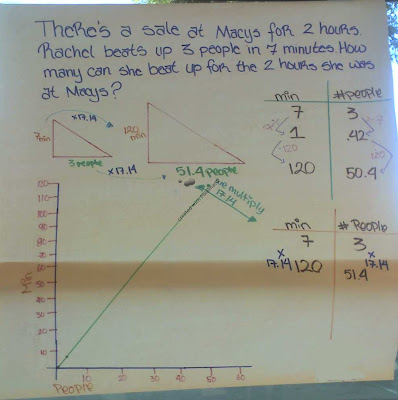 There's a sale at Macys for 2 hours.
Rachel beats up 3 people in 7 minutes. How
many can she beat up for the 2 hours she was
at Macys?
x17.14
7 min
3 people
x17.14
120 min
51.4 people
min #people
7 3
1 .42
120 50.4
÷7
120
120
we multiply
17.14
min # People
7 3
x17.14 x17.14
120 51.4
Min
120
110
100
90
80
70
60
50
40
30
20
10
10 20 30 40 50 60
People